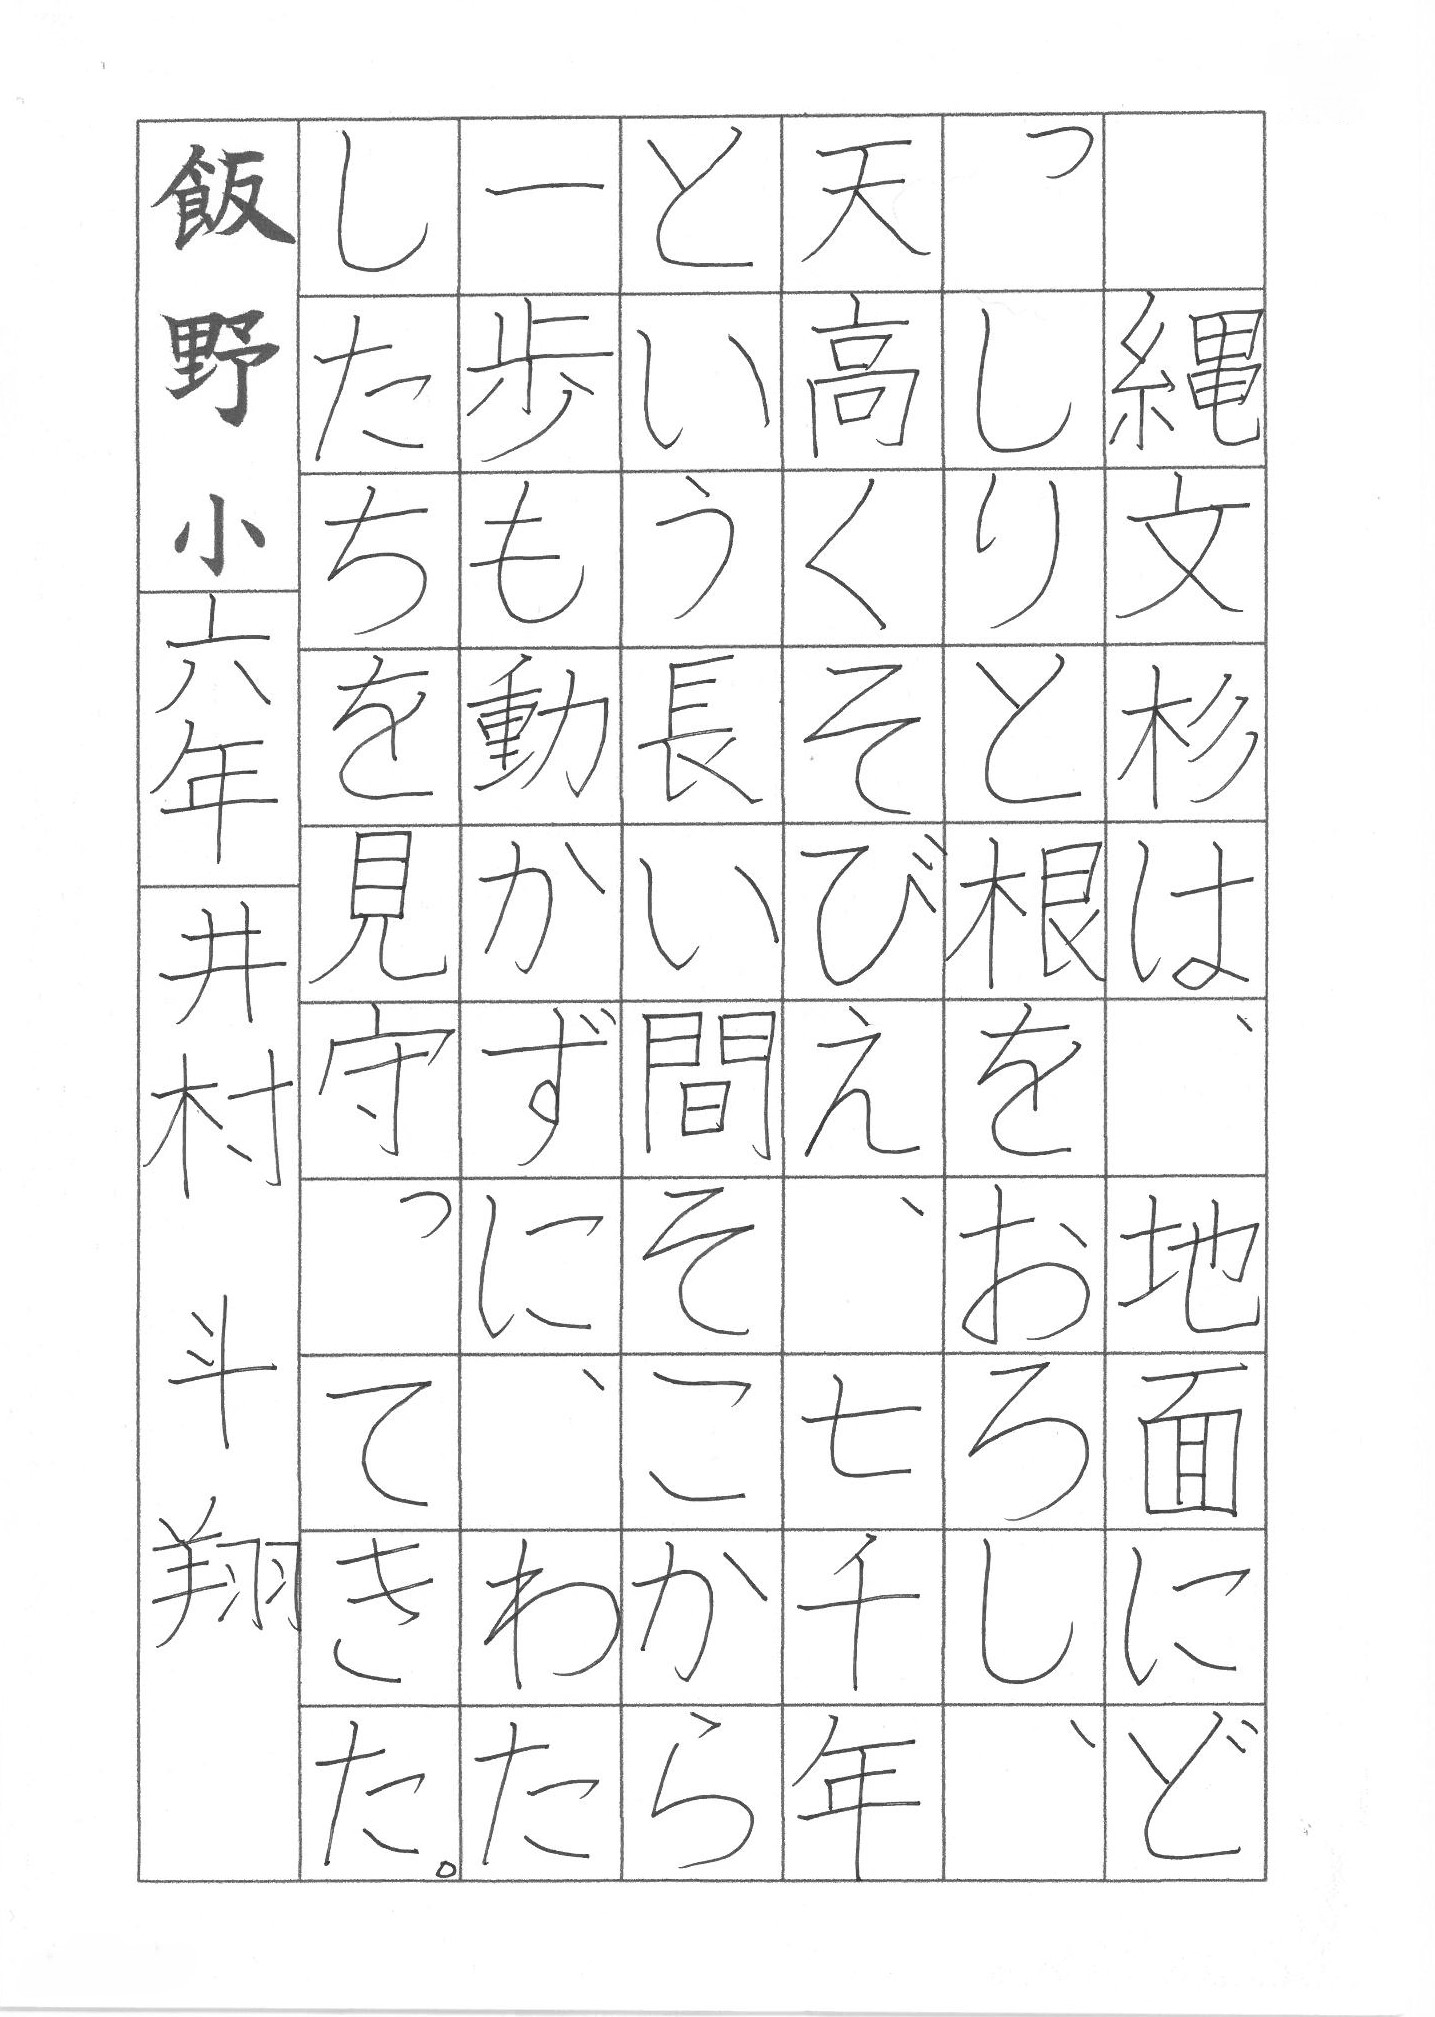 縄文杉は、地面にど
っしりと根をおろし、
天高くそびえ、七千年
という長い間そこから
一歩も動かずに、わた
したちを見守ってきた。
飯野小六年井村斗翔